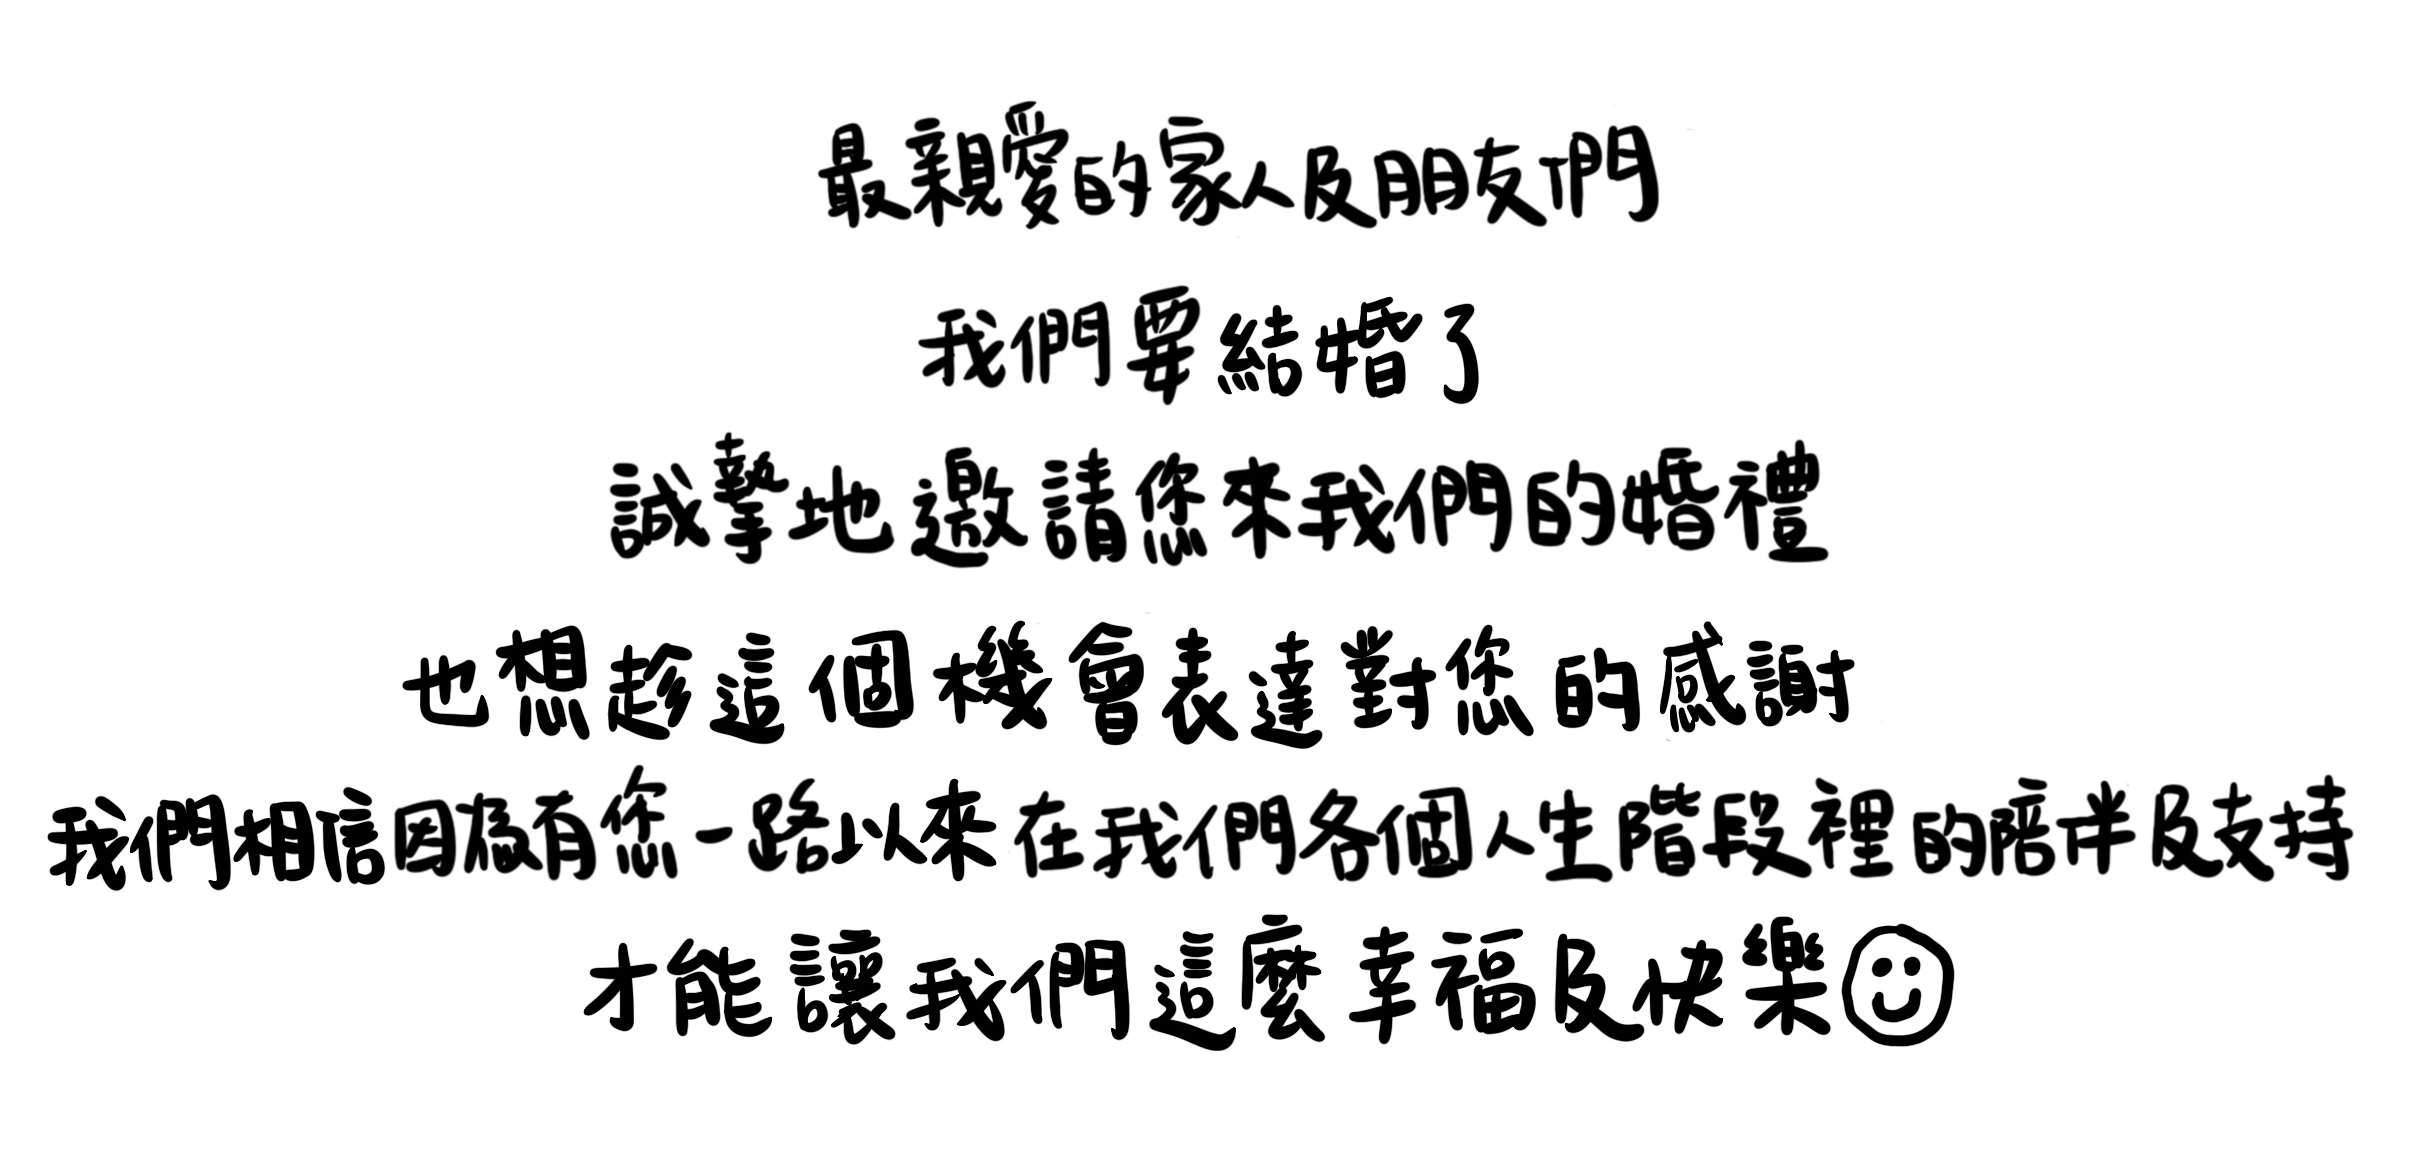 最親愛的家人及朋友們
我們要結婚了
誠摯地邀請您來我們的婚禮
也想趁這個機會表達對您的感謝
我們相信因為有您一路以來在我們各個人生階段裡的陪伴及支持
才能讓我們這麼幸福及快樂